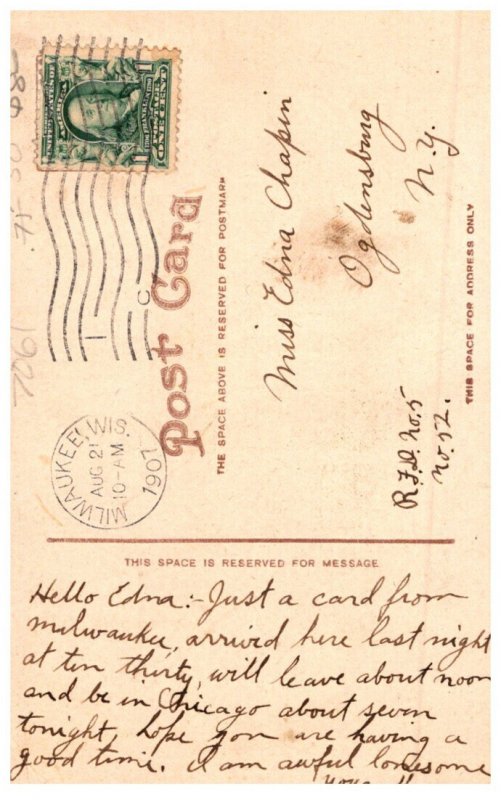 UNITED STATES OF AMERICA
POSTAGE
1 ONE CENT 1
MILWAUKEE, WIS.
AUG 21
10-AM
1907
1 C
Post Card
THE SPACE ABOVE IS RESERVED FOR POSTMARK
Miss Edna Chapin
Ogdensburg
N.Y.
R.F.D. No. 5
No. 52.
THIS SPACE FOR ADDRESS ONLY
THIS SPACE IS RESERVED FOR MESSAGE
Hello Edna:- Just a card from
Milwaukee, arrived here last night
at ten thirty, will leave about noon
and be in Chicago about seven
tonight, hope you are having a
good time. I am awful lonesome